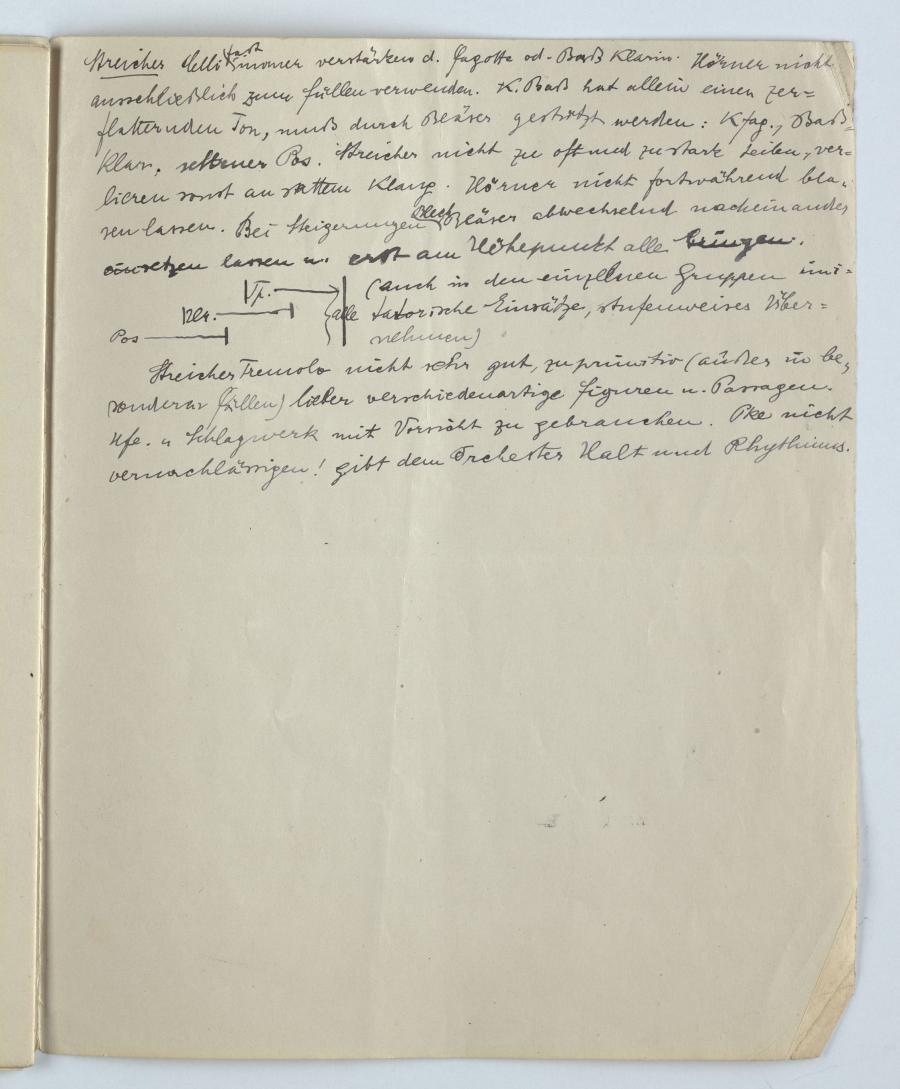 Streicher Celli fast immer verstärken d. Fagotte od. Baß Klarin. Hörner nicht
ausschließlich zum füllen verwenden. K. Baß hat allein einen zer=
flatternden Ton, muß durch Bläser gestützt werden: Kfag., Baß=
Klar., seltener Pos. Streicher nicht zu oft und zu stark teilen, ver=
lieren sonst an sattem Klang. Hörner nicht fortwährend bla=
sen lassen. Bei Steigerungen Blech Bläser abwechselnd nacheinander
einsetzen lassen u. erst am Höhepunkt alle bringen.
Tp. (auch in den einzelnen Gruppen imi=
Hr. alle tatorische Einsätze, stufenweises Über=
Pos nehmen)
Streicher Tremolo nicht sehr gut, zu primitiv (außer in be=
sonderen Fällen) lieber verschiedenartige Figuren u. Passagen.
Hfe. u Schlagwerk mit Vorsicht zu gebrauchen. Pke nicht
vernachlässigen! gibt dem Orchester Halt und Rhythmus.